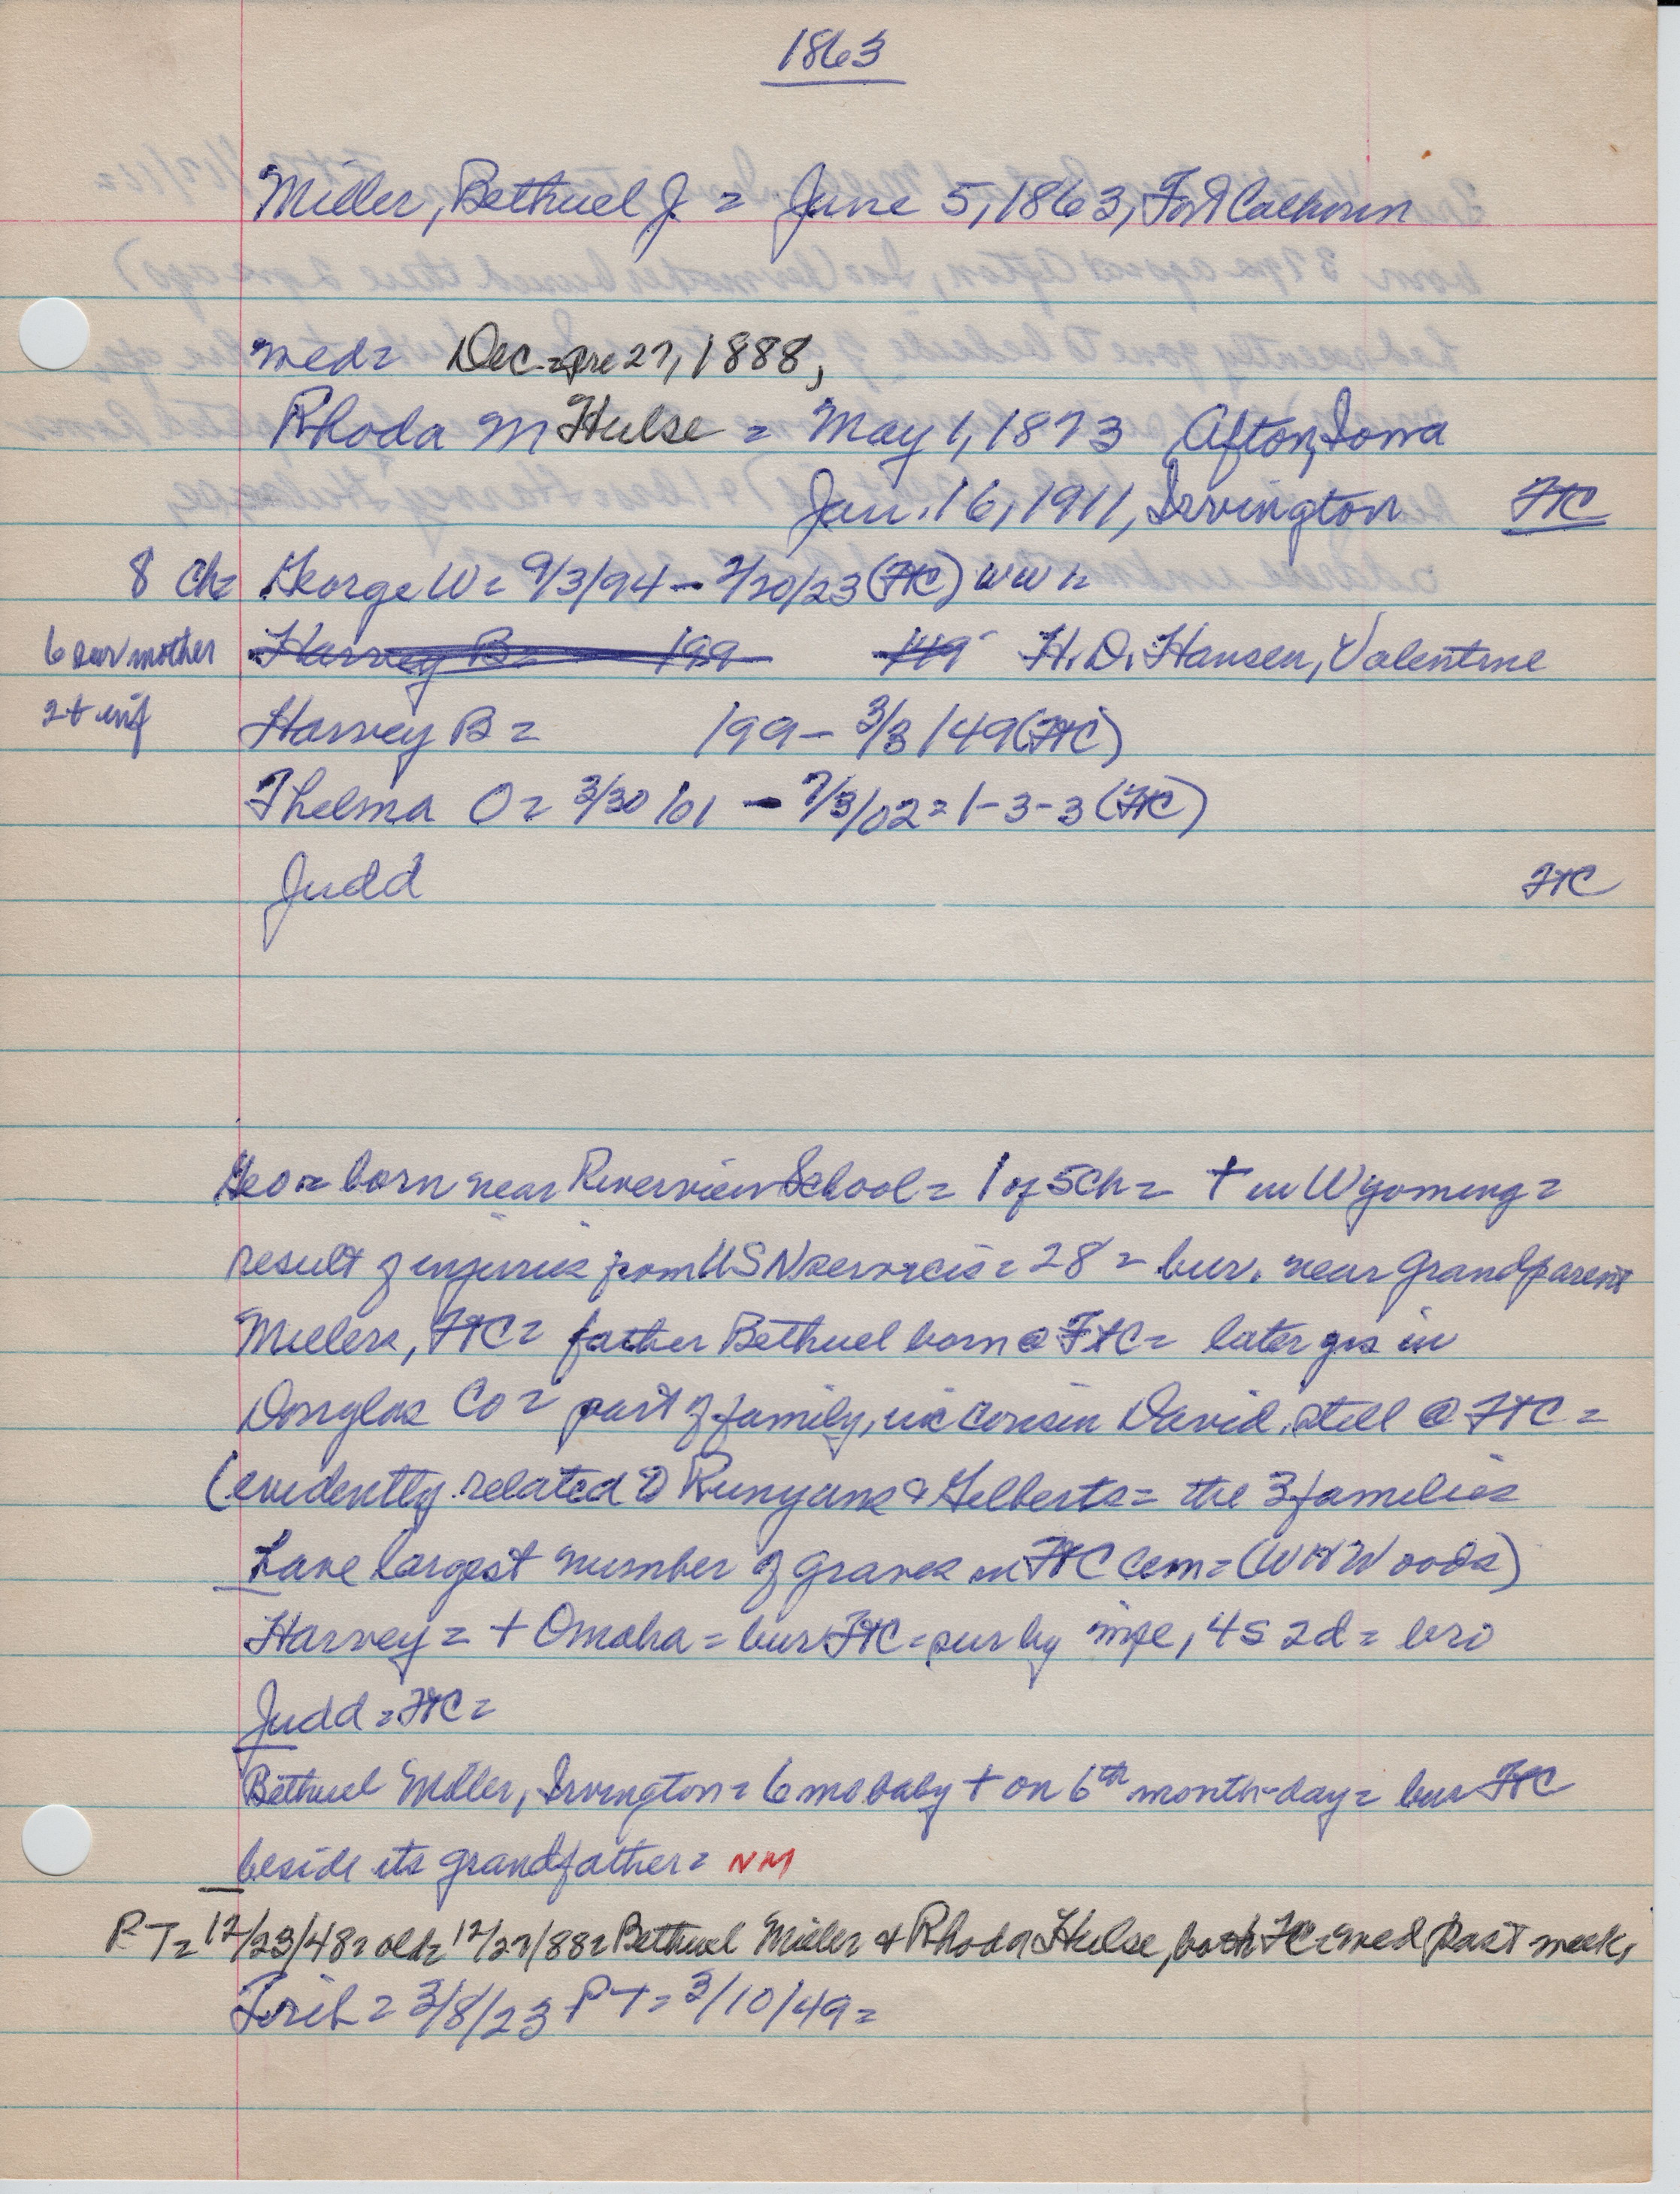 1863
Miller, Bethuel J. = June 5, 1863, Fort Calhoun
med= Dec = pre 27, 1888,
Rhoda M Hulse = May 1, 1873 Afton, Iowa
Jan. 16, 1911, Irvington FtC
8 Ch= George W= 9/3/94 - 2/20/23 (FtC) WW
6 sur mother Harvey B= 199 149 H.D. Hansen, Valentine
2 + inf Harvey B = 199 - 3/3/49 (FtC)
Thelma O = 3/30/01 - 7/3/02 = 1-3-3 (FtC)
Judd FtC
Geo = born near Riverview School = 1 of 5 Ch = + in Wyoming =
result of injuries from USN services = 28 = bur. near grandparent
Millers, FtC = father Bethuel born @ FtC = later yrs in
Douglas Co = part of family, cousin David, still @ FtC =
(evidently related to Runyans & Gilberts = the 3 families
have largest number of graves in FtC Cem = (WHWoods)
Harvey = + Omaha = bur FtC = sur by wife, 4s 2d = bro
Judd = FtC =
Bethuel Miller, Irvington = 6 mo baby + on 6th month-day = bur FtC
beside its grandfather = NM
PT= 12/23/48 = old= 12/27/88 = Bethuel Miller & Rhoda Hulse, both FC = med past week,
Trib = 3/8/23 PT = 3/10/49 =